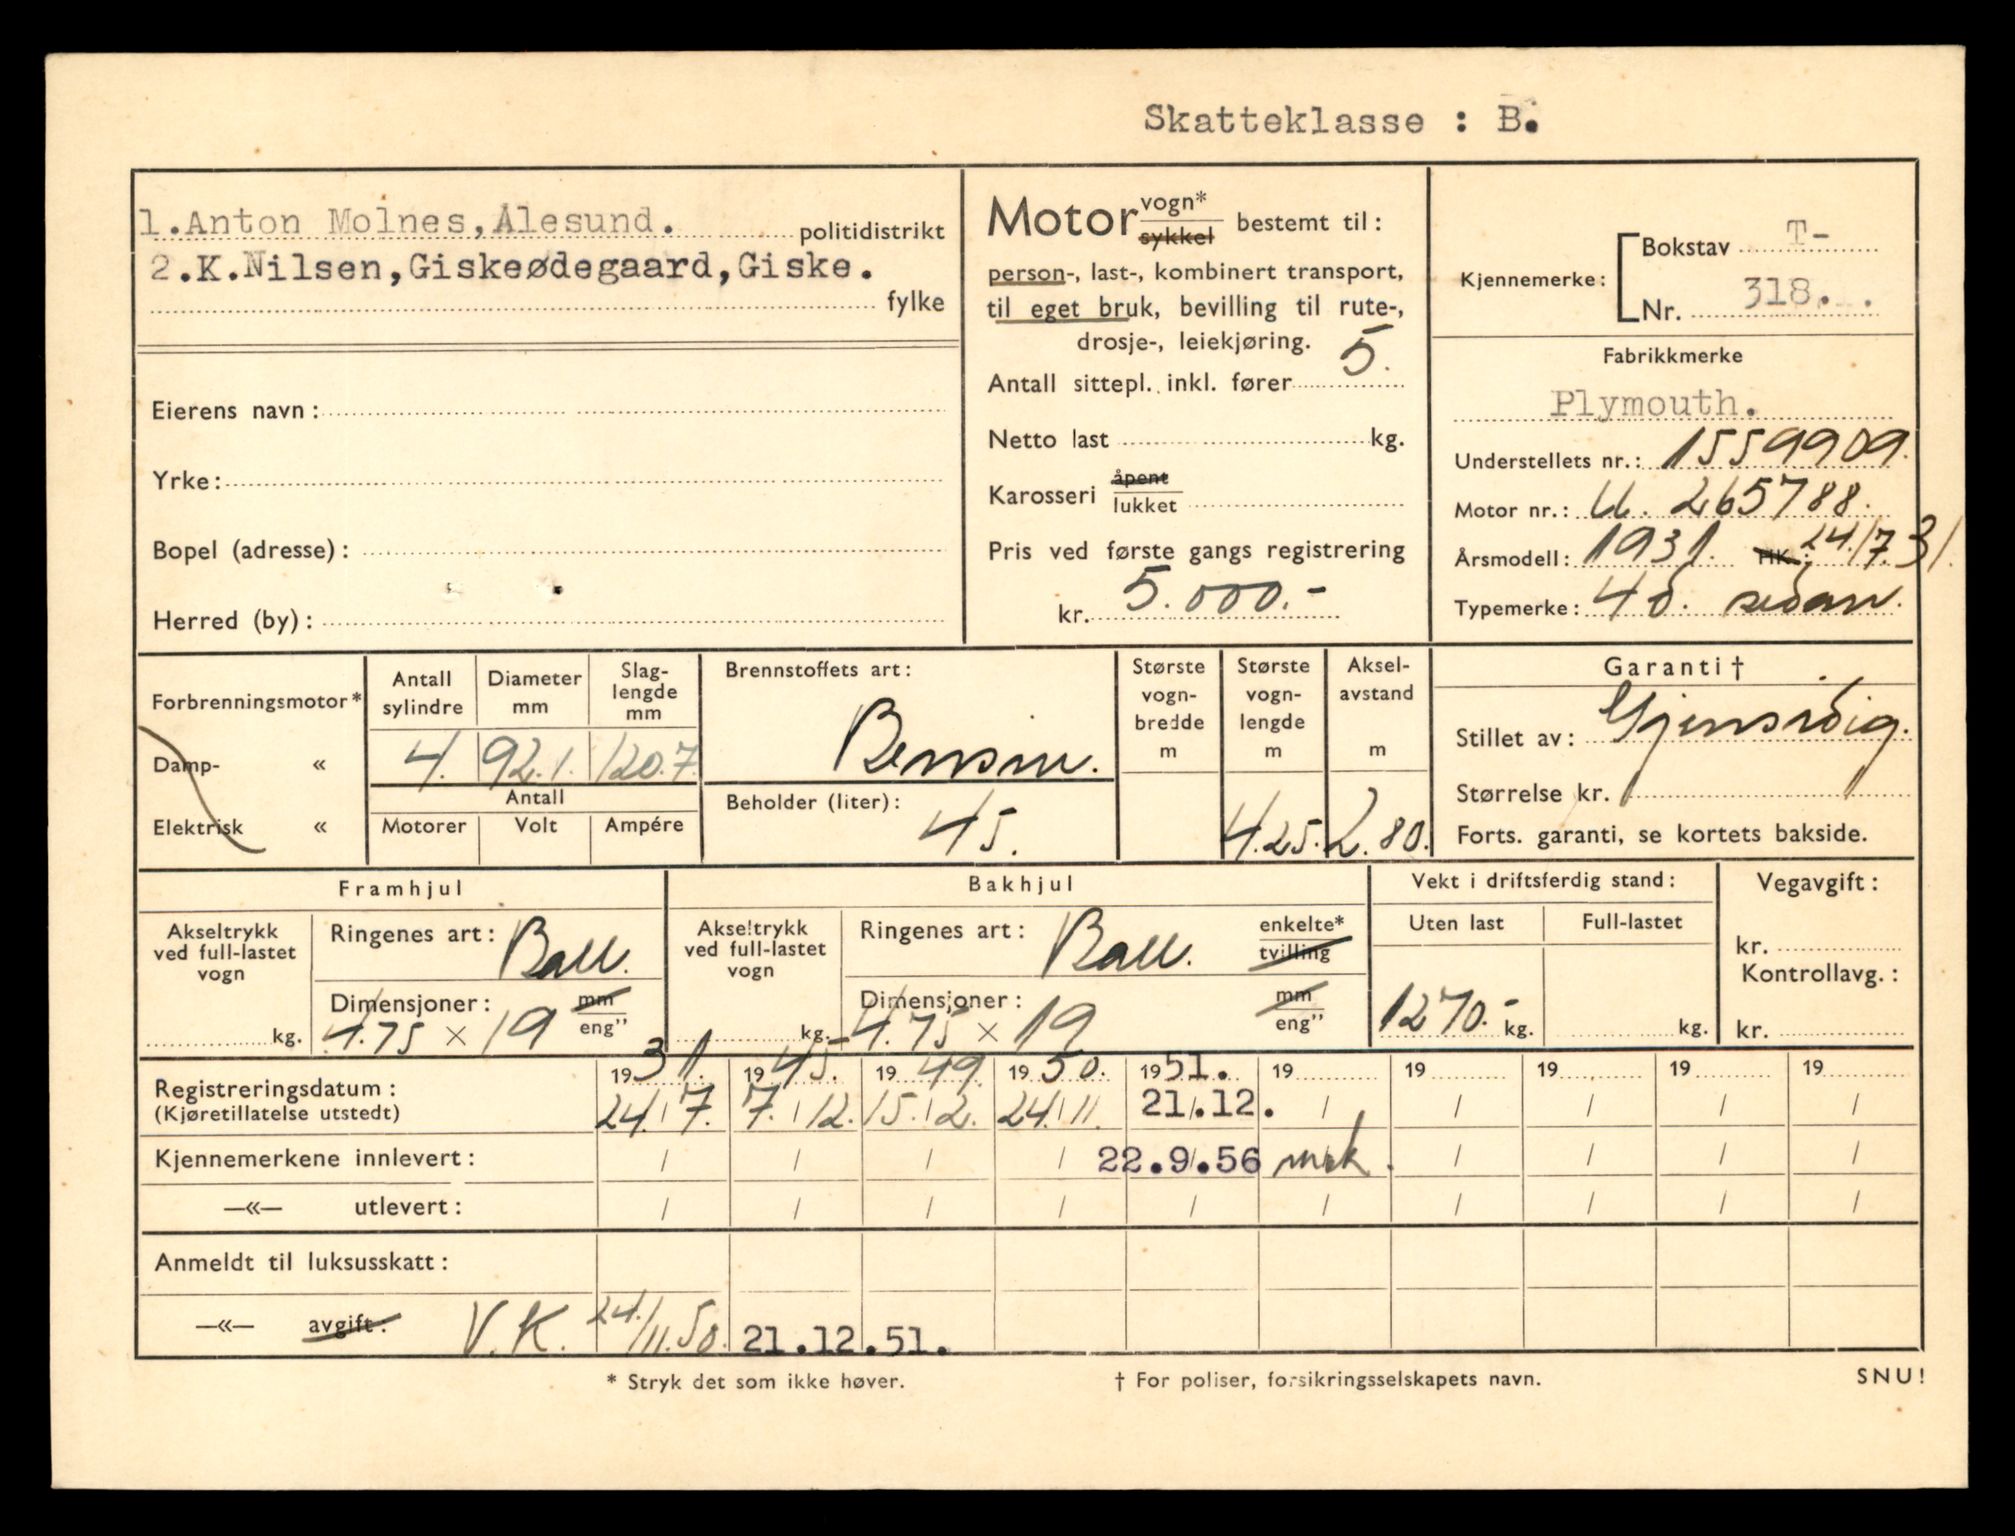 Skatteklasse : B.
1.Anton Molnes,Ålesund. politidistrikt
2.K.Nilsen,Giskeødegaard,Giske.
fylke
Eierens navn:
Yrke:
Bopel (adresse):
Herred (by):
Motor vogn*
sykkel
bestemt til:
person-, last-, kombinert transport,
til eget bruk, bevilling til rute-,
drosje-, leiekjøring.
Antall sittepl. inkl. fører 5.
Netto last kg.
Karosseri åpent
lukket
Pris ved første gangs registrering
kr. 5.000.-
Kjennemerke:
Bokstav T-
Nr. 318.
Fabrikkmerke
Plymouth.
Understellets nr.: 1559909.
Motor nr.: U. 265788.
Årsmodell: 1931. HK.: 24./7.31.
Typemerke: 40. sedan.
Forbrenningsmotor*
Damp- «
Elektrisk «
Antall sylindre
4.
Diameter mm
92.1.
Slag-
lengde
mm
120.7.
Antall
Motorer Volt Ampére
Brennstoffets art:
Bensin.
Beholder (liter):
45.
Største
vogn-
bredde
m
Største
vogn-
lengde
m
4.25.
Aksel-
avstand
m
2.80.
Garanti †
Stillet av: Gjensidig.
Størrelse kr.
Forts. garanti, se kortets bakside.
Framhjul
Akseltrykk
ved full-lastet
vogn
kg.
Ringenes art: Ball.
Dimensjoner: mm
eng”
4.75 × 19
Bakhjul
Akseltrykk
ved full-lastet
vogn
kg.
Ringenes art: Ball. enkelte*
tvilling
Dimensjoner: mm
eng”
4.75 × 19
Vekt i driftsferdig stand:
Uten last Full-lastet
1270.- kg. kg.
Vegavgift:
kr.
Kontrollavg.:
kr.
Registreringsdatum: 1931. 1945. 1949. 1950. 1951. 19 19 19 19 19
(Kjøretillatelse utstedt) 24./7. 7./12. 15./2. 24./11. 21/.12. / / / / /
Kjennemerkene innlevert: / / / / 22.9.56 / / / /
—«— utlevert: / / / / / / / / / /
Anmeldt til luksusskatt:
—«— avgift: V.K. 24./11.50. 21.12.51.
* Stryk det som ikke høver.
† For poliser, forsikringsselskapets navn.
SNU!